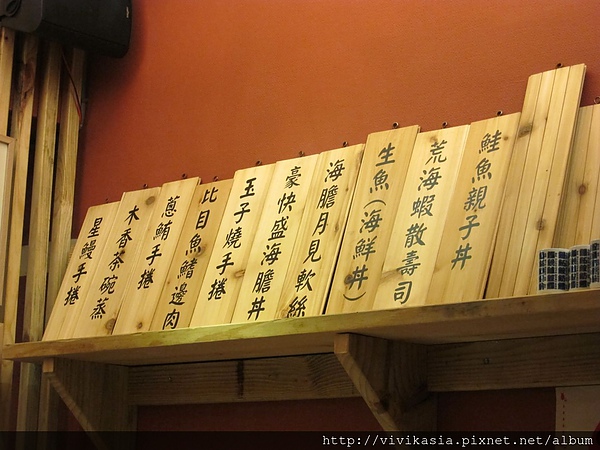 鮭魚親子丼
荒海蝦散壽司
生魚(海鮮丼)
海膽月見軟絲
豪快盛海膽丼
玉子燒手捲
比目魚鰭邊肉
蔥鮪手捲
木香茶碗蒸
星鰻手捲
http://vivikasia.pixnet.net/album